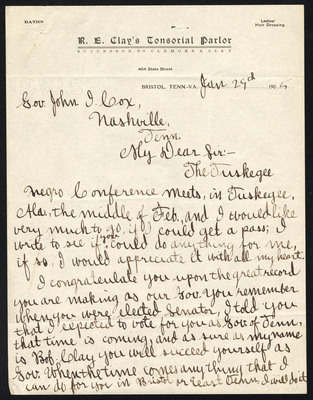 BATHS
Ladies'
Hair Dressing
R. E. Clay's Tonsorial Parlor
SUCCESSOR TO CARMORE & CLAY
404 State Street
BRISTOL, TENN.-VA. Jan 29d 1906
Gov. John I. Cox,
Nashville,
Tenn.
My Dear Sir:-
The Tuskegee
negro Conference meets, in Tuskegee,
Ala., the middle of Feb, and I would like
very much to go, if I could get a pass; I
write to see if you could do anything for me,
if so, I would appreciate it with all my heart.
I congratulate you upon the great record
you are making as our Gov. You remember
when you were elected Senator, I told you
that I expected to vote for you as Gov. of Tenn,
that time is coming, and as sure as my name
is Bob. Clay, you will succeed yourself as
Gov. When the time comes anything that I
can do for you in Bristol or East Tenn. I will do it